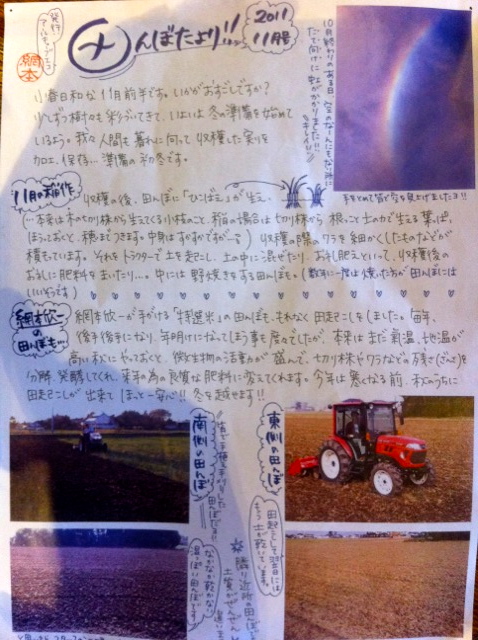 発行
網本
田んぼだより!!
2011
11月号
10月終わりのある日、空のなーんにもない所に
たて向けに虹がかかりました!!!
キレイ!!
手をとめて皆で空を見上げましたヨ!!
小春日和な11月前半です。いかがおすごしですか?
少しずつ樹々も彩づいてきて、いよいよ冬の準備を始めて
いるよう。我々人間も暮れに向って収穫した実りを
加工、保存…準備の初冬です。
11月の稲作
収穫の後、田んぼに「ひこばえ」が生え、
(…本来は木の切り株から生えてくる小枝のこと、稲の場合は切り株から根っこと土の力で生える葉っぱ。
ほうっておくと、穂までつきます。中身はすかすかですが…。) 収穫の際のワラを細かくしたものなどが
積もっています。それをトラクターで土を起こし、土の中に混ぜたり、お礼肥えといって、収穫後の
お礼に肥料をまいたり…。中には野焼きをする田んぼも。(数年に一度は焼いた方が田んぼには
いいそうです)
網本欣一
の田んぼも…
網本欣一が手がける"特選米"の田んぼも、それなく田起こしをしました。毎年、
後手後手になり、年明けになってしまう事も度々でしたが、本来はまだ気温、地温が
高い秋にやっておくと、微生物の活動力が盛んで、切り株やワラなどの残さ(ざんさ)を
分解、発酵してくれ、来年の為の良質な肥料に変えてくれます。今年は寒くなる前、秋のうちに
田起こしが出来てほっと一安心!!冬を越せます!!
南側の田んぼ
東側の田んぼ
田起こしして翌日には
もう土が乾いています。
なかなか乾かない
湿っぽい田んぼです
隣り近所の田んぼでも
土質がぜんぜん
違います